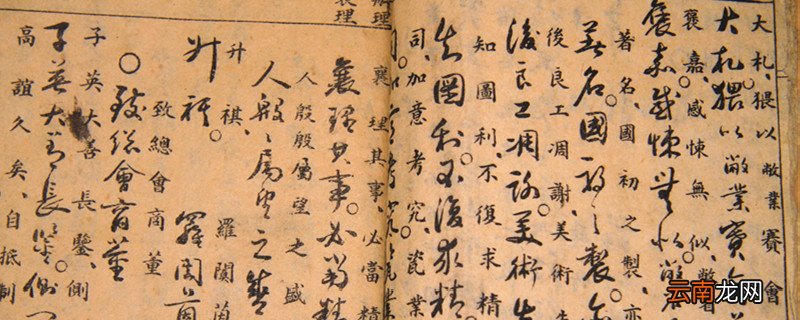 大札、猥以敝業賽會
大札。猥以敝業賽會
褒嘉、感悚無似、敝
褒嘉。感悚無似。敝
著名、國初之製、亦
著名。國初之製。
後良工凋謝、美術失
後良工凋謝。美術失
知圖利、不復求精
知圖利。不復求精
司、加意考究、瓷業
司。加意考究。瓷業
辦理
襄理
襄理其事、必富精
襄理其事。必富精
人殷殷屬望之盛
人殷殷屬望之盛
升祺、 羅閱
升祺。 羅閱
致總會商董
〇致總會商董
子英大善長鑒、側
子英大善長鑒。側
高誼久矣、自抵制
云南龙网